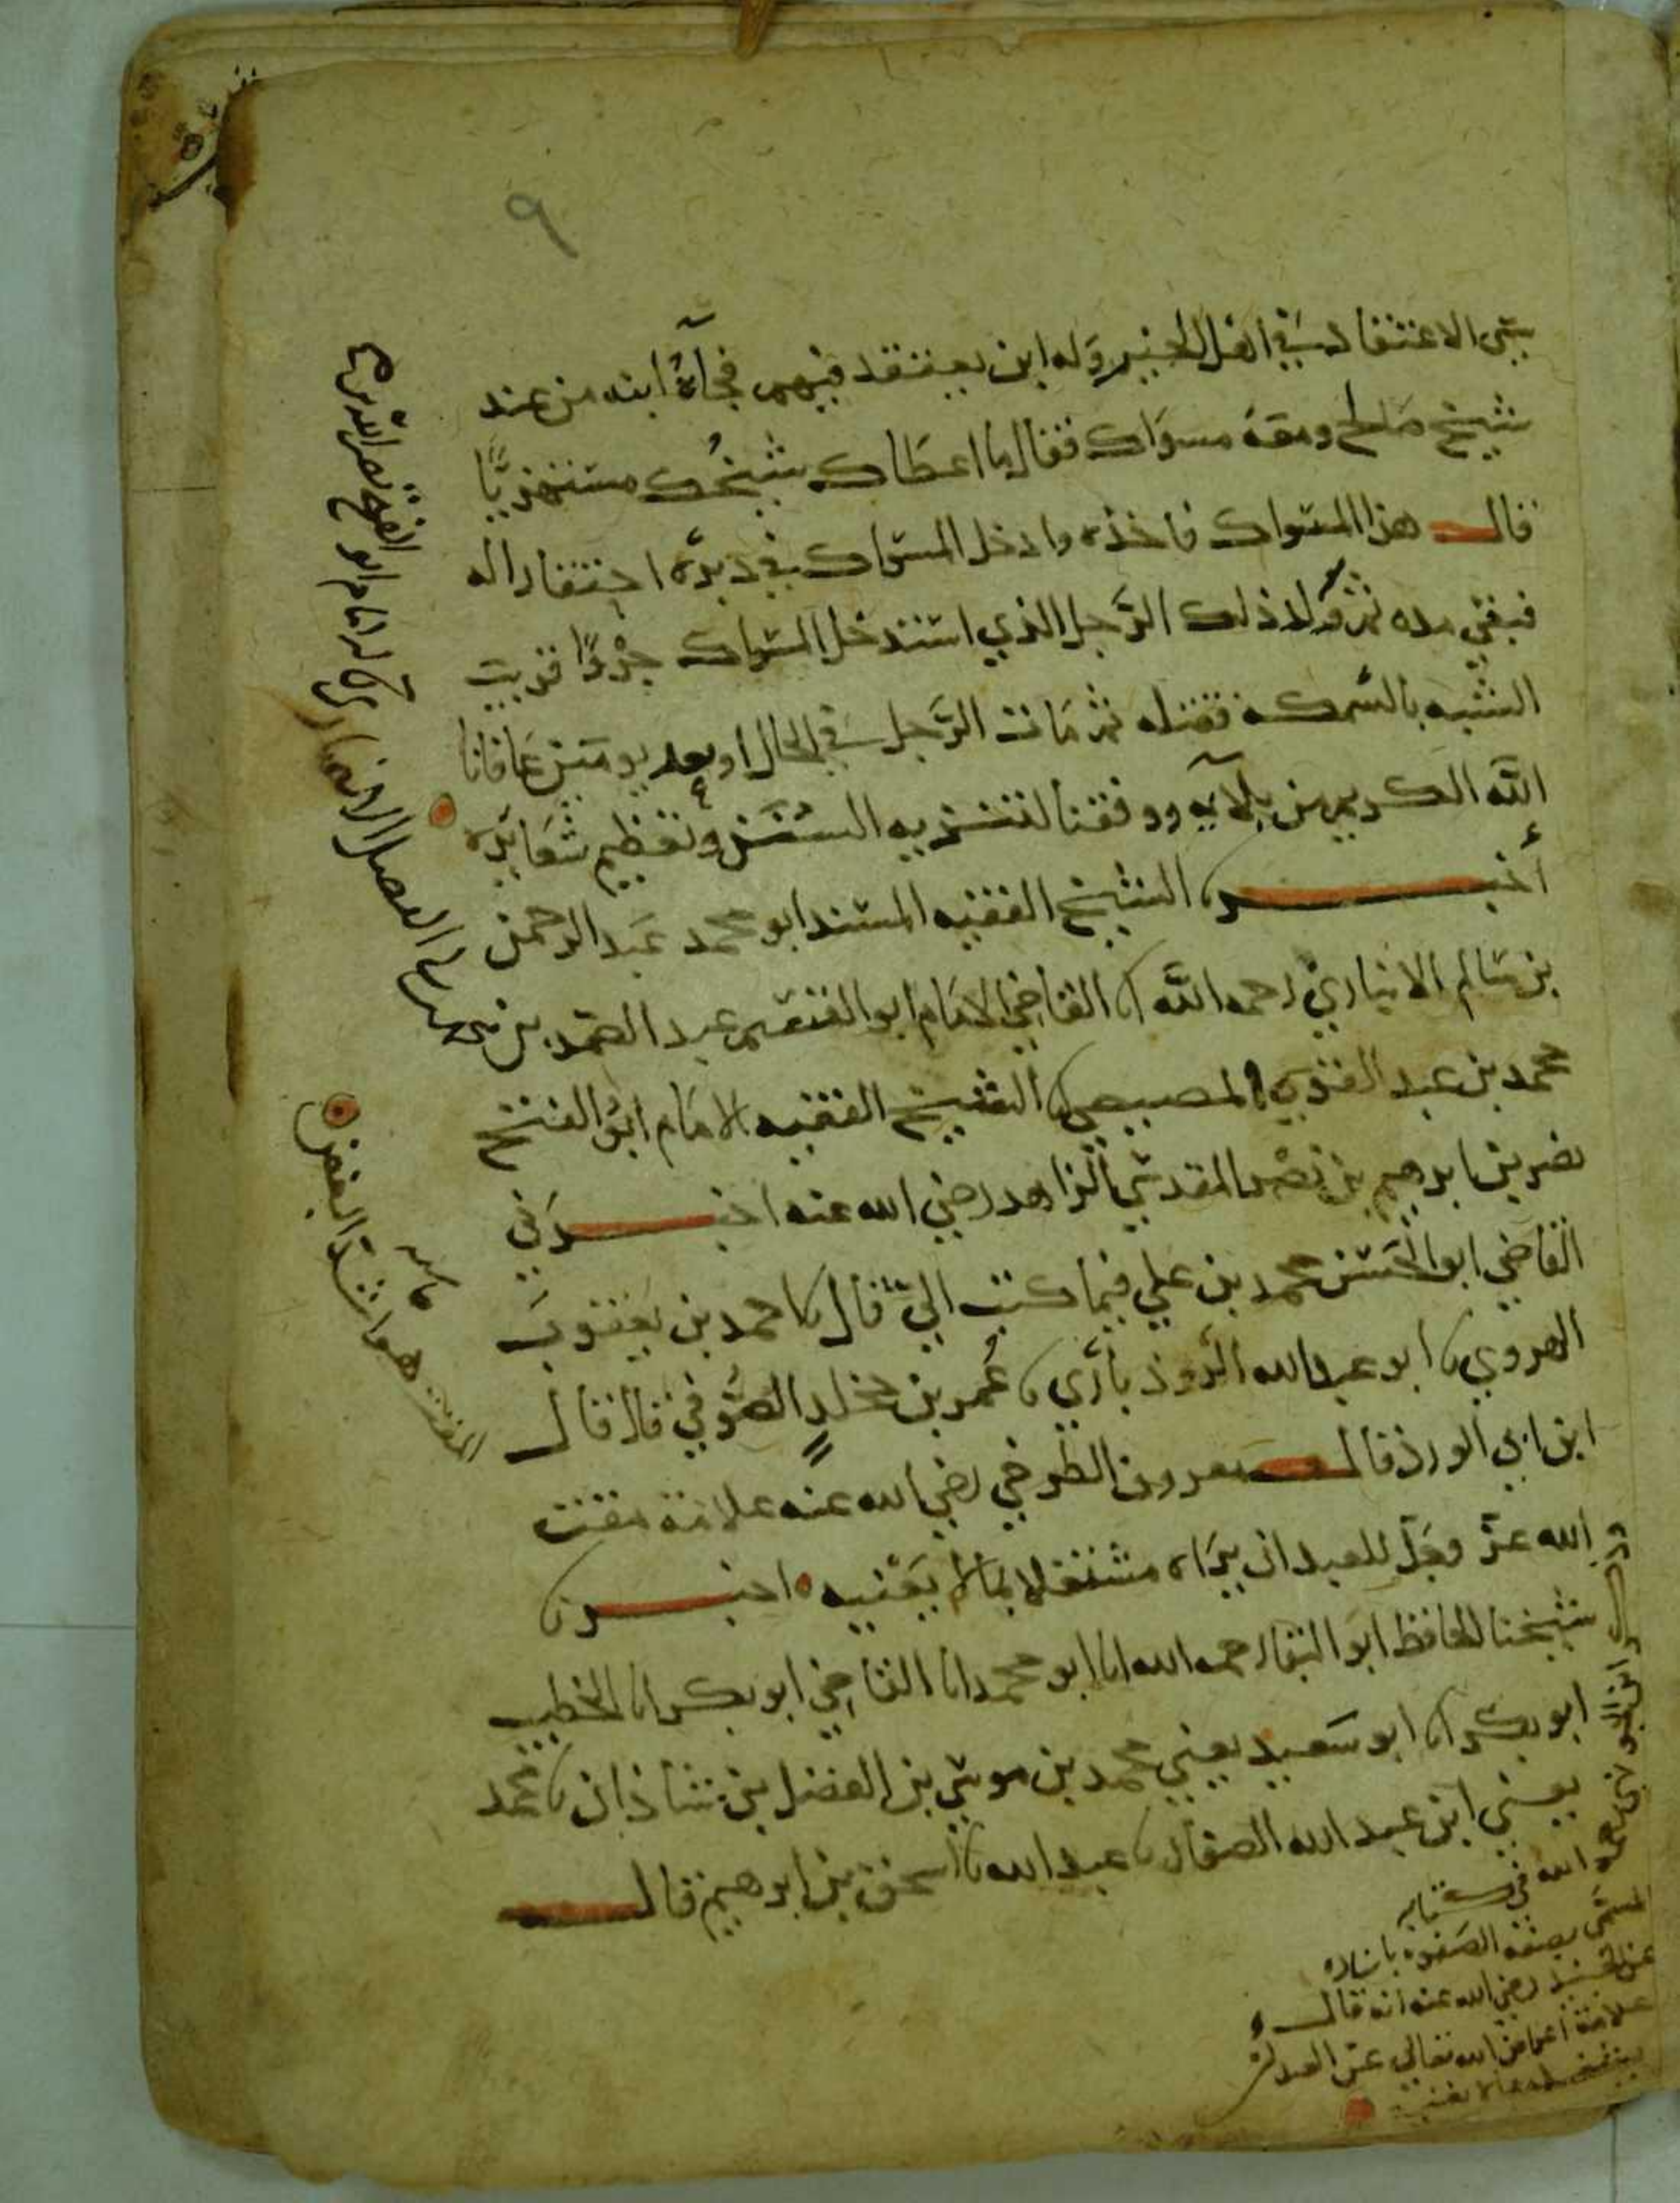 ٩
سيّئ الاعتقاد في اهل الخير وله ابن يعتقد فيهم فجآءه ابنه من عند
شيخ صالح ومعه مسواك فقال ما اعطاك شيخك مستهزيًا
قال هذا المسواك فاخذه وادخل المسواك في دبره احتقارا له
فبقي مده ثم ولد ذلك الرجل الذي استدخل المسواك جروًا قريب
الشبه بالسمكه فقتله ثم مات الرجل في الحال او بعد يومين عافانا
الله الكريم من بلآيه ووفقنا لتنزيه السنن وتعظيم شعائره
أخبرنا الشيخ الفقيه المسند ابو محمد عبد الرحمن
بن سالم الانباري رحمه الله انا القاضي الامام ابو القسم عبد الصمد بن
محمد بن عبد القوي المصيصي انا الشيخ الفقيه الامام ابو الفتح
نصر بن ابرهيم بن نصر المقدسي الزاهد رضي الله عنه اخبرني
القاضي ابو الحسن محمد بن علي فيما كتب اليّ قال نا حمد بن يعقوب
الهروي نا ابو عبد الله الروذباري نا عمر بن مخلد الصوفي قال قال
ابن ابي الورد قال معروف الكرخي رضي الله عنه علامة مقت
الله عزّ وجلّ للعبد ان يراه مشتغلا بما لا يعنيه اخبرنا
شيخنا الحافظ ابو البقا رحمه الله انا ابو محمد انا القاضي ابو بكر انا الخطيب
ابو بكر انا ابو سعيد يعني محمد بن موسى بن الفضل بن شاذان نا محمد
يعني ابن عبد الله الصفار نا عبد الله نا اسحق بن ابرهيم قال
الفضل الانصاري
المقت هو اشد البغض
حاشيه
رحمه الله في كتابه
المسمى بصفة الصفوه باسناده
عن الجنيد رضي الله عنه انه قال
علامة اعراض الله تعالى عن العبد ان